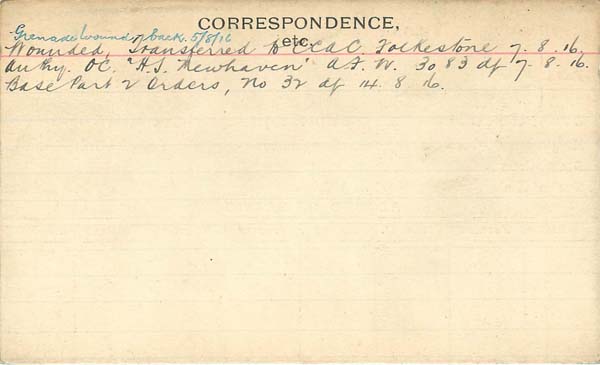 CORRESPONDENCE,
etc.
Grenade wound, back. 5/8/16
Wounded, Transferred to C.C.A.C. Folkestone 7. 8. 16.
Authy. OC. "H.S. Newhaven" A.F. W. 3083 df 7. 8. 16.
Base Part 2 Orders, No 32 df 14. 8. 16.